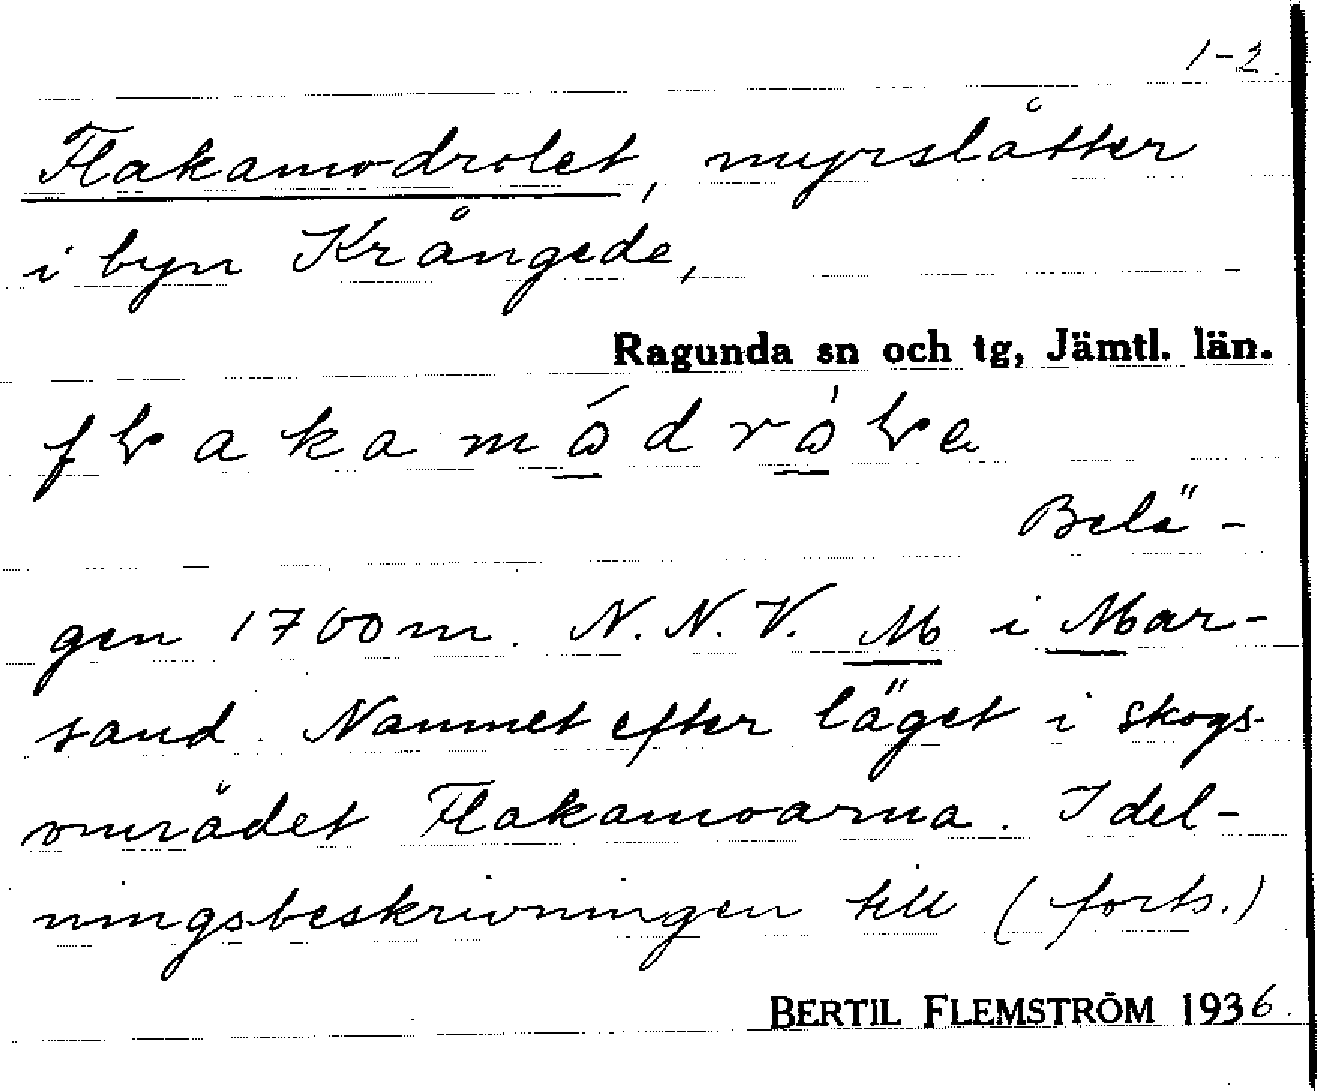 1-2.
Flakamodrolet, myrslåtter
i byn Krångede,
Ragunda sn och tg, Jämtl. län.
Belä-
gen 1700 m. N.N.V. M i Mar-
sand. Namnet efter läget i skogs-
området Flakamoarna. I del-
ningsbeskrivningen till (forts.)
BERTIL FLEMSTRÖM 1936.